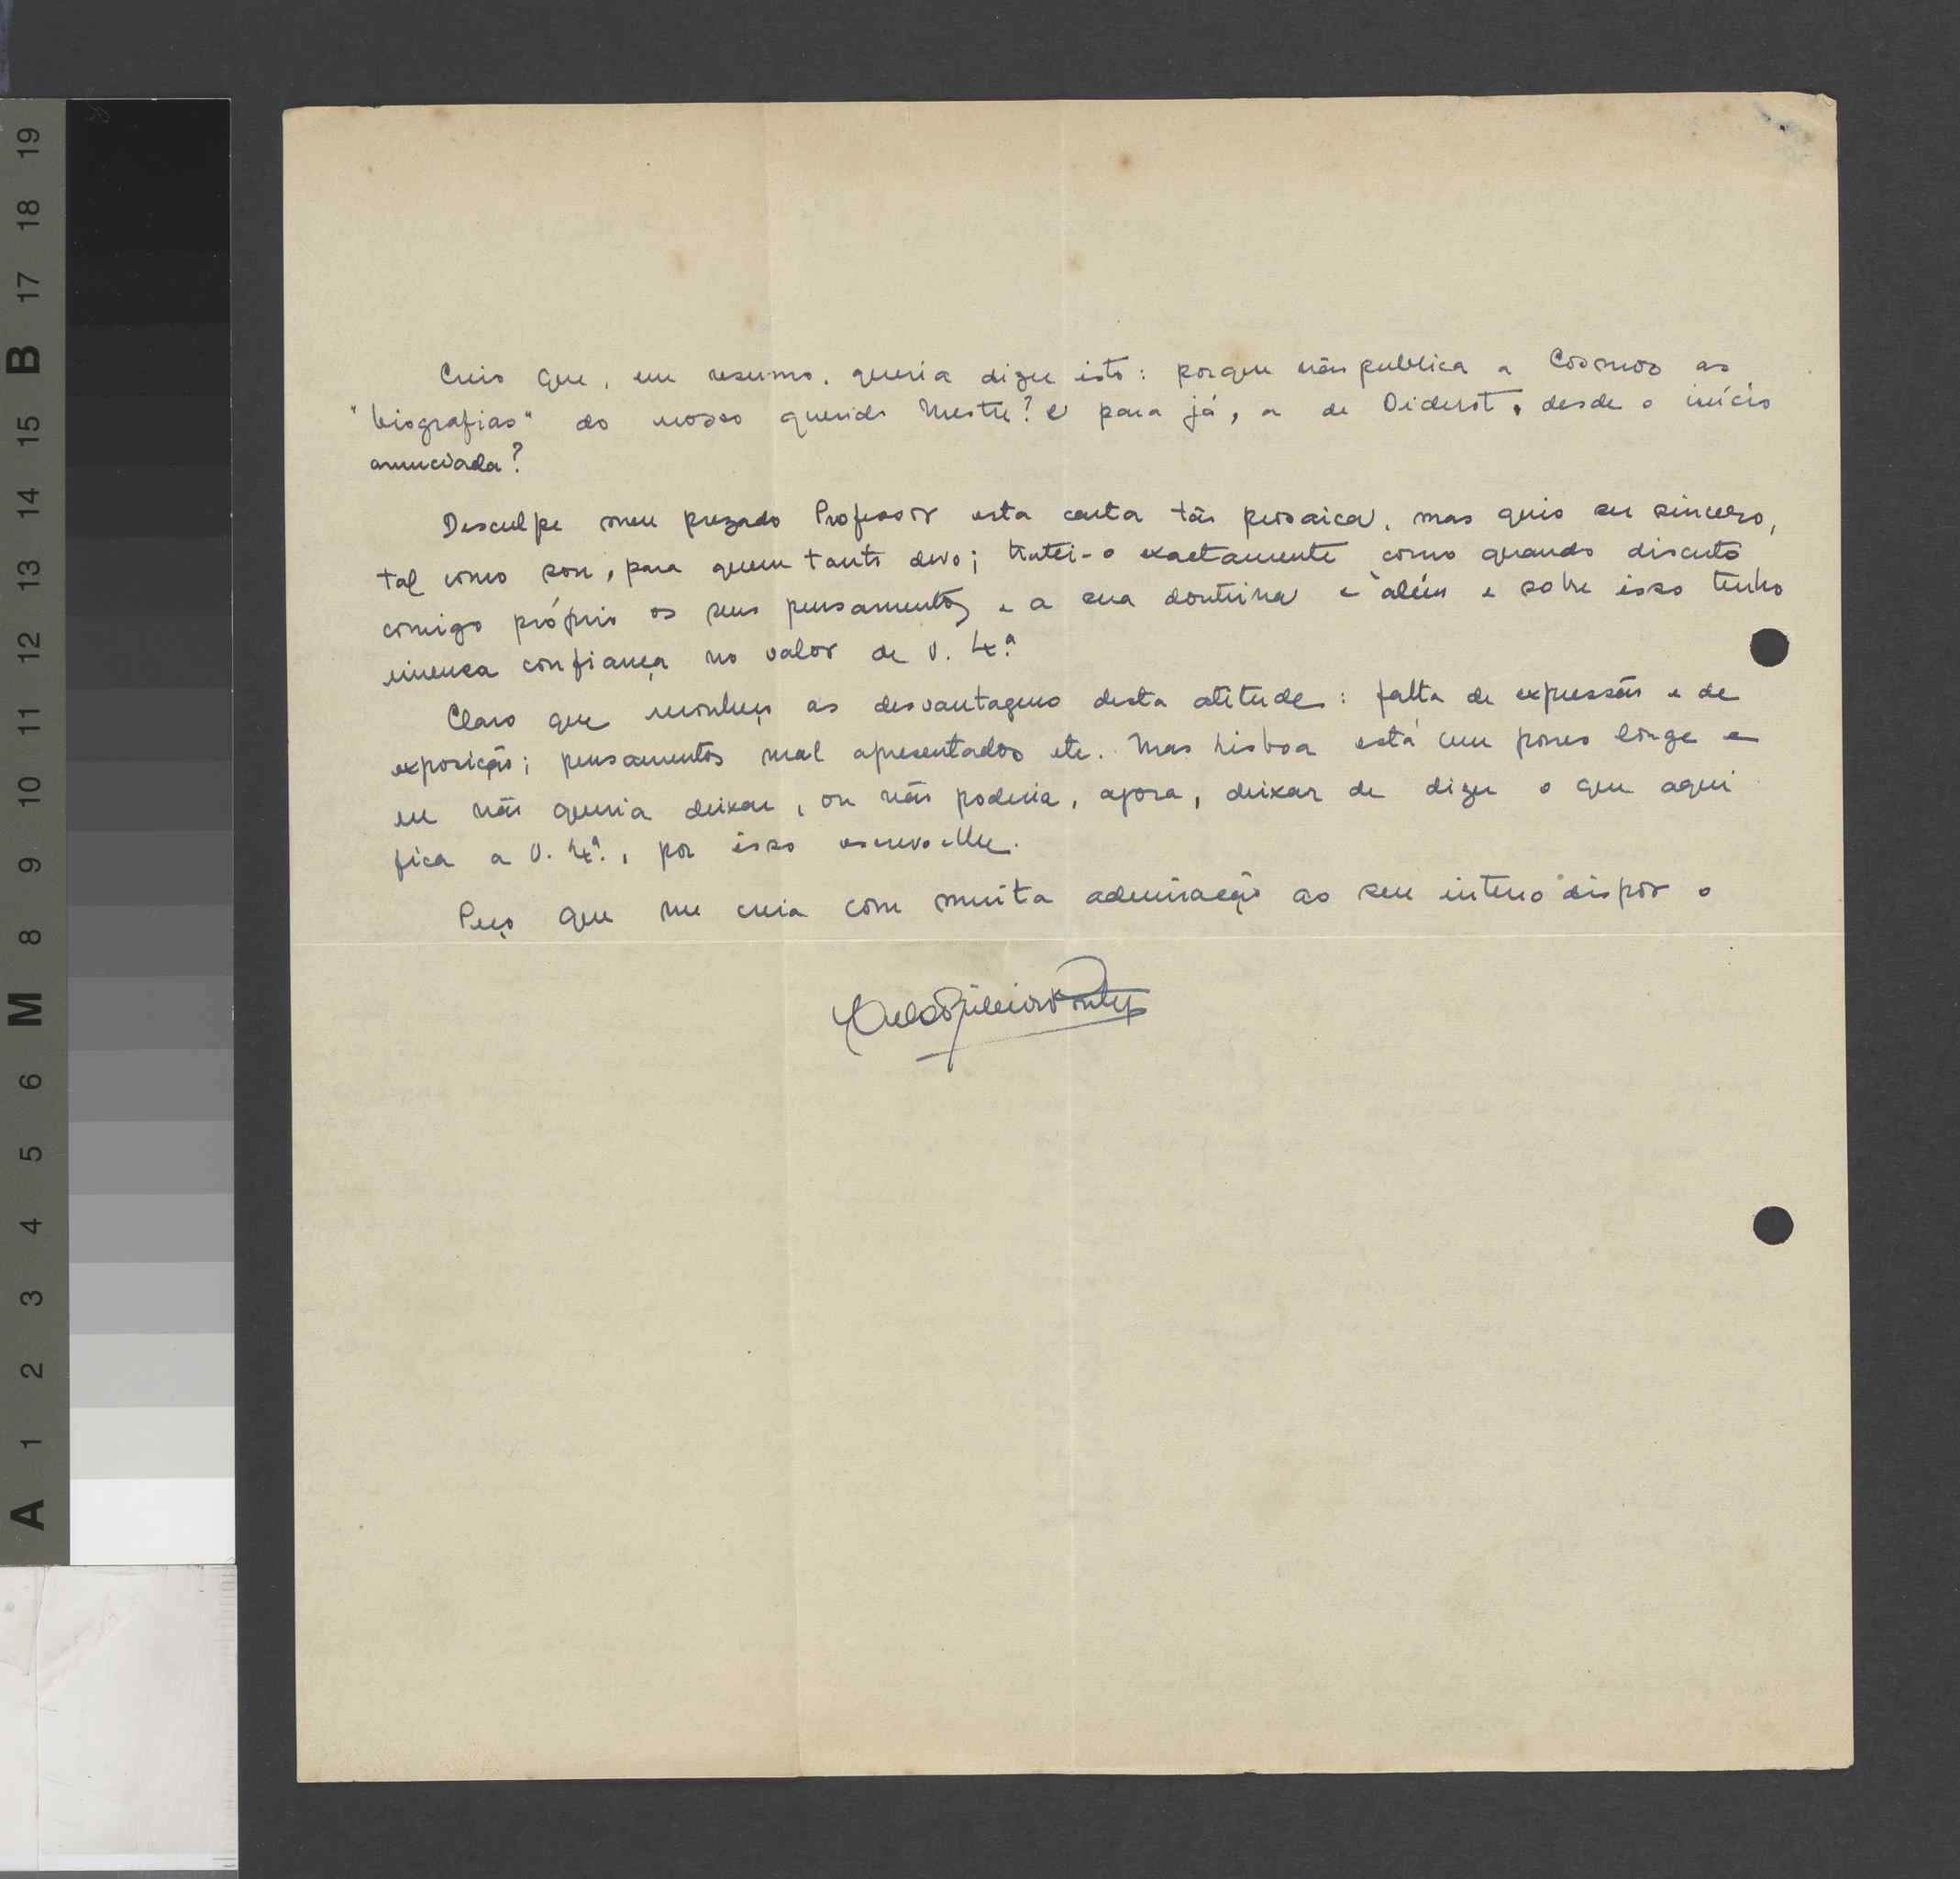 Creio que, em resumo, queria dizer isto: porque não publica a Cosmos as
"biografias" do nosso querido Mestre? e para já, a de Diderot, desde o início
anunciada?
Desculpe meu prezado Professor esta carta tão prosaica, mas quis ser sincero,
tal como sou, para quem tanto devo; tratei-o exactamente como quando discuto
comigo próprio os seus pensamentos e a sua doutrina e além e sobre isso tenho
imensa confiança no valor de V. Ex.ª
Claro que reconheço as desvantagens desta atitude: falta de expressão e de
exposição; pensamentos mal apresentados etc. Mas Lisboa está um pouco longe e
eu não queria deixar, ou não poderia, agora, deixar de dizer o que aqui
fica a V. Ex.ª, por isso escrevo-lhe.
Peço que me creia com muita admiração ao seu inteiro dispor o
19
18
17
B
15
14
13
12
11
10
9
8
M
6
5
4
3
2
1
A